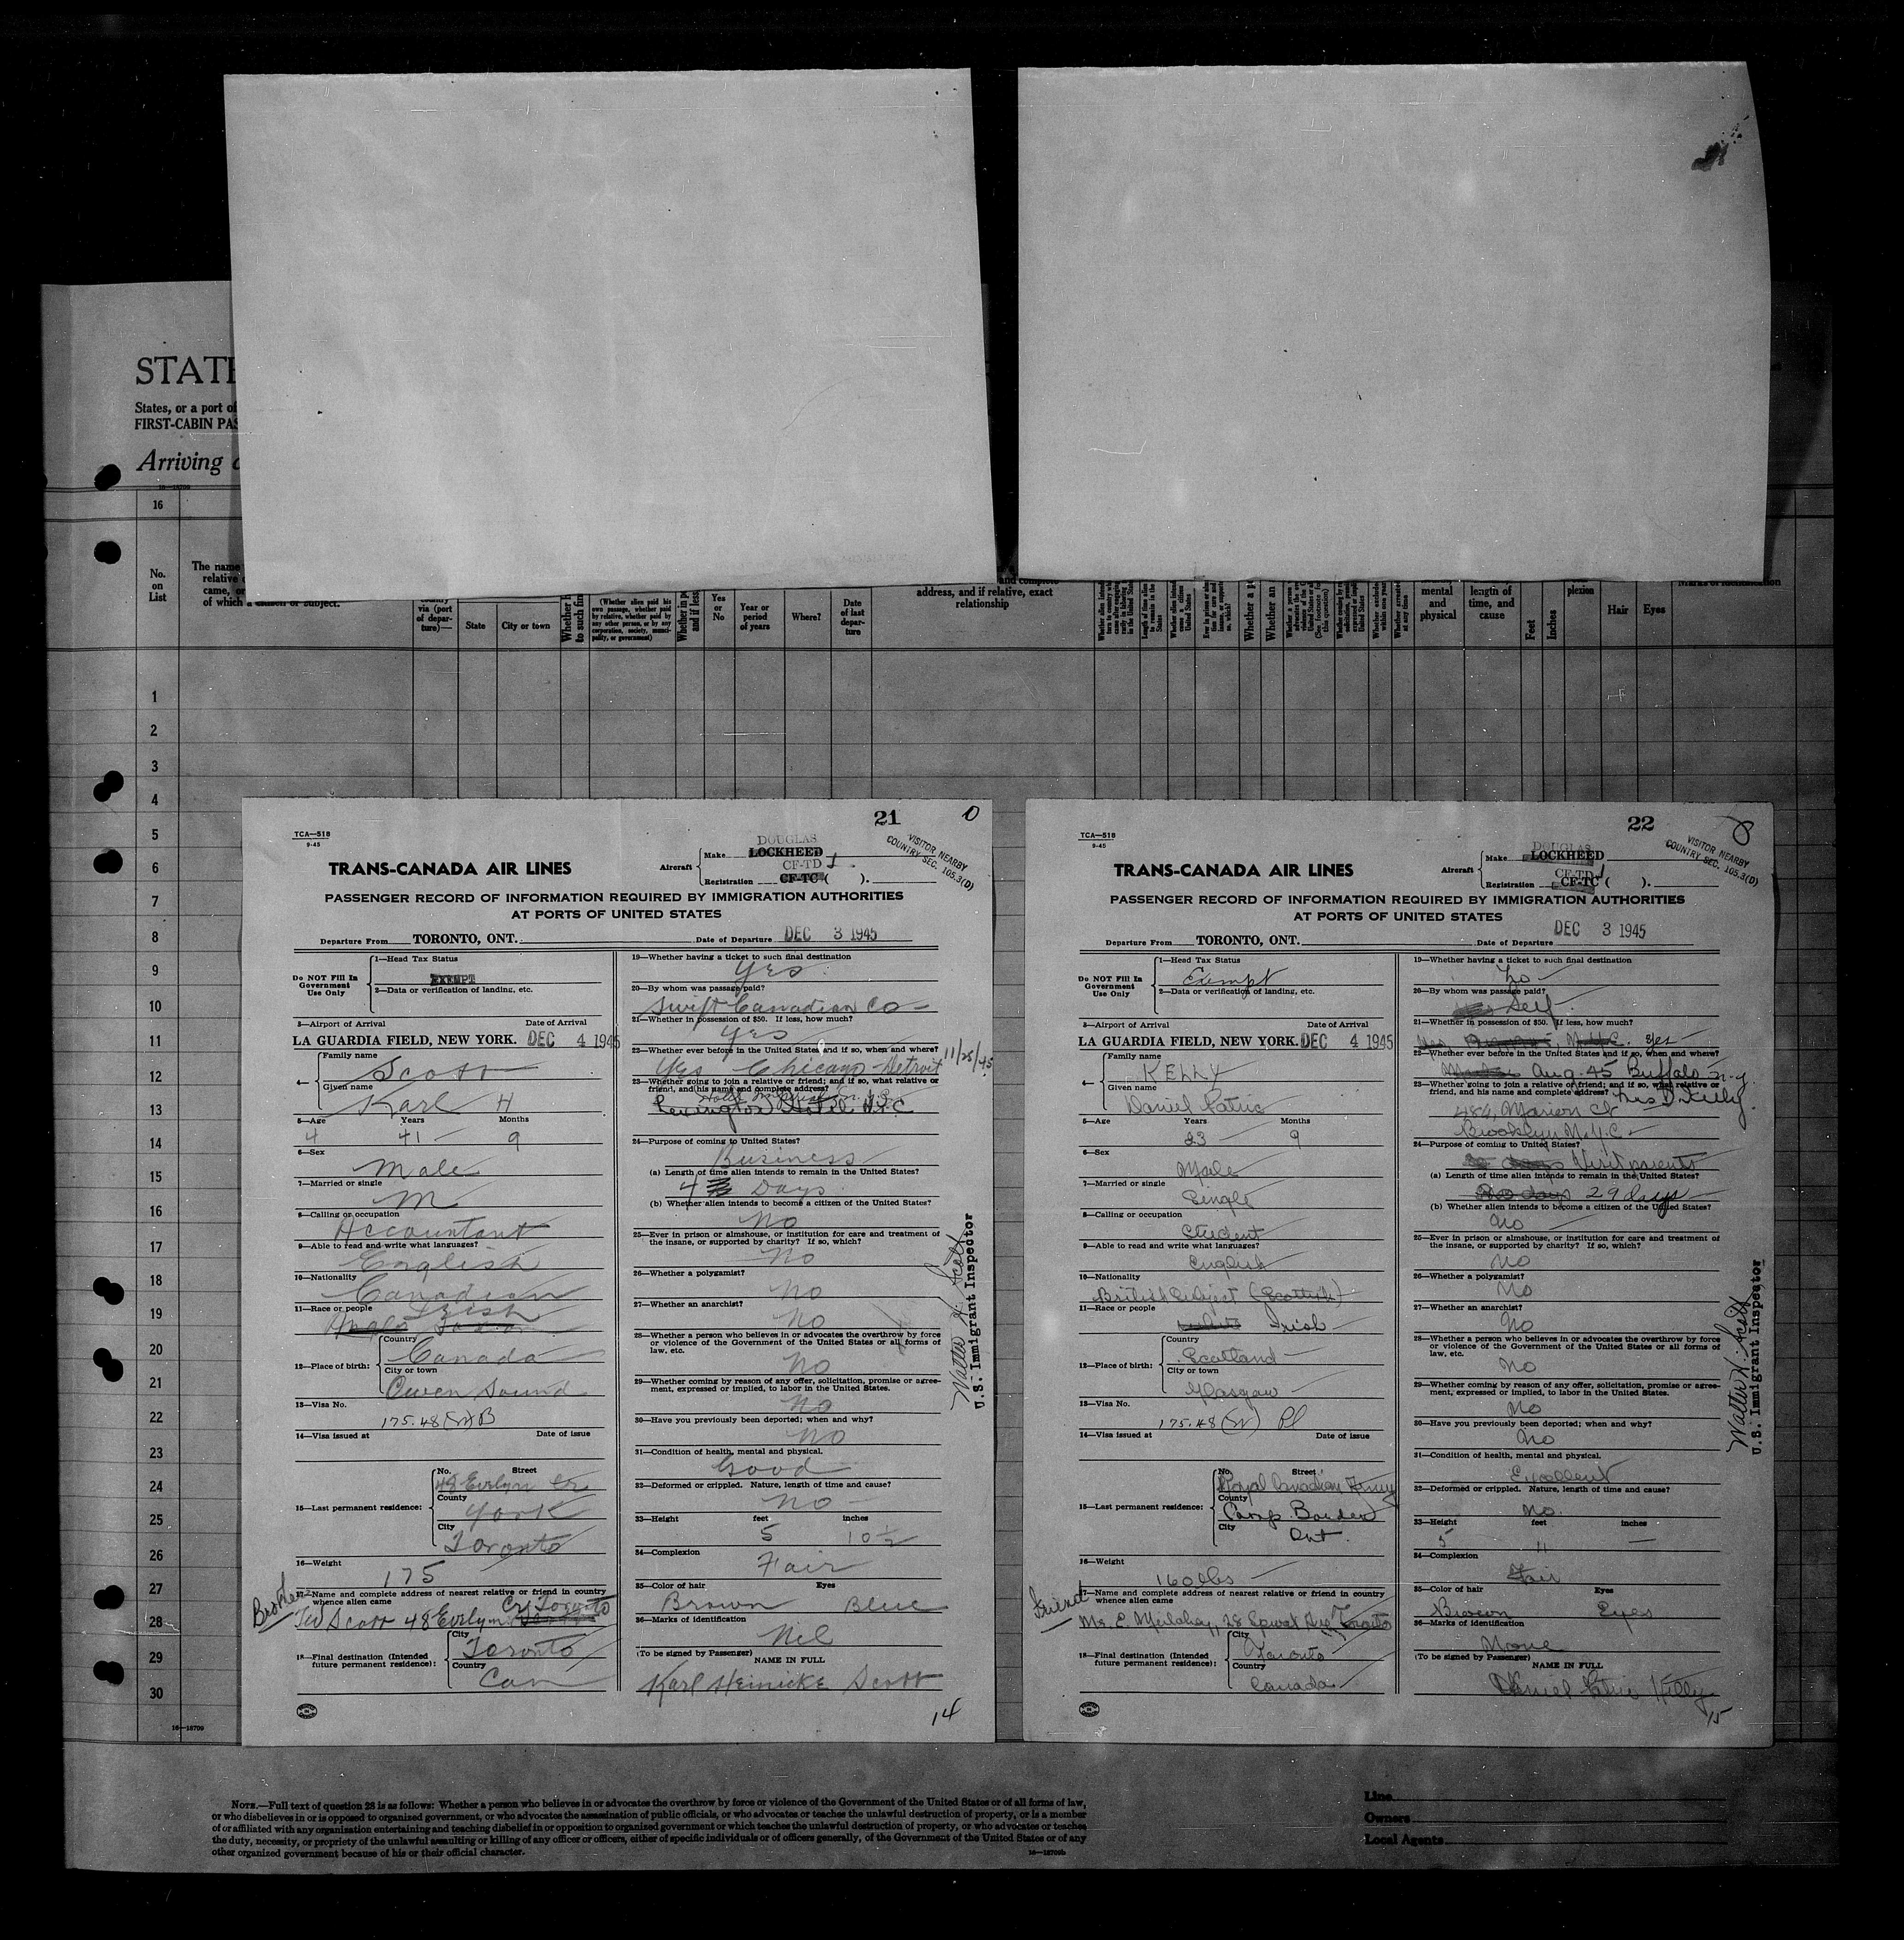 STATE
States, or a port of
FIRST-CABIN PAS
Arriving
16
No.
on
List
The name
relative
came, or
of which a citizen or subject.
via (port
of depar-
ture)—
State
City or town
(Whether alien paid his
own passage, whether paid
by relative, whether paid by
any other person, or by any
corporation, society, munici-
pality, or government)
Yes
or
No
Year or
period
of years
Where?
Date
of last
depar-
ture
and complete
address, and if relative, exact
relationship
mental
and
physical
length of
time, and
cause
Feet
Inches
plexion
Hair
Eyes
Marks of identification
1
2
3
4
5
6
7
8
9
10
11
12
13
14
15
16
17
18
19
20
21
22
23
24
25
26
27
28
29
30
16—18709
21
0
TCA—518
9-45
TRANS-CANADA AIR LINES
Aircraft
Make DOUGLAS LOCKHEED
Registration CF-TD J CF-TC ( ).
VISITOR NEARBY
COUNTRY SEC. 105.3(D)
PASSENGER RECORD OF INFORMATION REQUIRED BY IMMIGRATION AUTHORITIES
AT PORTS OF UNITED STATES
Departure From TORONTO, ONT. Date of Departure DEC 3 1945
Do NOT Fill In
Government
Use Only
1—Head Tax Status
EXEMPT
2—Data or verification of landing, etc.
3—Airport of Arrival Date of Arrival
LA GUARDIA FIELD, NEW YORK. DEC 4 1945
4—
Family name
Scott
Given name
Karl H
5—Age Years Months
4 41 9
6—Sex
Male
7—Married or single
M
8—Calling or occupation
Accountant
9—Able to read and write what languages?
English
10—Nationality
Canadian
11—Race or people
Irish
Anglo Saxon
12—Place of birth:
Country
Canada
City or town
Owen Sound
13—Visa No.
175.48 (W) B
14—Visa issued at Date of issue
15—Last permanent residence:
No. Street
48 Evelyn Cr
County
York
City
Toronto
16—Weight
175
17—Name and complete address of nearest relative or friend in country
whence alien came
Brother
Scott 48 Evelyn Cr Toronto
18—Final destination (Intended
future permanent residence):
City
Toronto
Country
Can
19—Whether having a ticket to such final destination
Yes
20—By whom was passage paid?
Swift Canadian Co
21—Whether in possession of $50. If less, how much?
Yes
22—Whether ever before in the United States and if so, when and where?
Yes Chicago Detroit 11/28/45
23—Whether going to join a relative or friend; and if so, what relative or
friend, and his name and complete address?
Lexington Hotel N.Y.C
24—Purpose of coming to United States?
Business
(a) Length of time alien intends to remain in the United States?
4 Days
(b) Whether alien intends to become a citizen of the United States?
No
25—Ever in prison or almshouse, or institution for care and treatment of
the insane, or supported by charity? If so, which?
No
26—Whether a polygamist?
No
27—Whether an anarchist?
No
28—Whether a person who believes in or advocates the overthrow by force
or violence of the Government of the United States or all forms of
law, etc.
No
29—Whether coming by reason of any offer, solicitation, promise or agree-
ment, expressed or implied, to labor in the United States.
No
30—Have you previously been deported; when and why?
No
31—Condition of health, mental and physical.
Good
32—Deformed or crippled. Nature, length of time and cause?
No
33—Height feet inches
5 10 ½
34—Complexion
Fair
35—Color of hair Eyes
Brown Blue
36—Marks of identification
Nil
(To be signed by Passenger)
NAME IN FULL
Karl Heinicke Scott
14
Walter H. Scott
U.S. Immigrant Inspector
22
TCA—518
9-45
TRANS-CANADA AIR LINES
Aircraft
Make DOUGLAS LOCKHEED
Registration CF-TD J CF-TC ( ).
VISITOR NEARBY
COUNTRY SEC. 105.3(D)
PASSENGER RECORD OF INFORMATION REQUIRED BY IMMIGRATION AUTHORITIES
AT PORTS OF UNITED STATES
Departure From TORONTO, ONT. Date of Departure DEC 3 1945
Do NOT Fill In
Government
Use Only
1—Head Tax Status
Exempt
2—Data or verification of landing, etc.
3—Airport of Arrival Date of Arrival
LA GUARDIA FIELD, NEW YORK. DEC 4 1945
4—
Family name
KELLY
Given name
Daniel Patric
5—Age Years Months
23 9
6—Sex
Male
7—Married or single
Single
8—Calling or occupation
Student
9—Able to read and write what languages?
English
10—Nationality
British Subject (Scottish)
11—Race or people
Irish
12—Place of birth:
Country
Scotland
City or town
Glasgow
13—Visa No.
175.48 (W) Pl
14—Visa issued at Date of issue
15—Last permanent residence:
No. Street
Royal Canadian Army
County
Camp Borden
City
Ont.
16—Weight
160 lbs
17—Name and complete address of nearest relative or friend in country
whence alien came
Friend
Mr. E. 28 Ave Toronto
18—Final destination (Intended
future permanent residence):
City
Toronto
Country
Canada
19—Whether having a ticket to such final destination
20—By whom was passage paid?
Self
21—Whether in possession of $50. If less, how much?
Yes
22—Whether ever before in the United States and if so, when and where?
Aug. 45 Buffalo N.Y.
23—Whether going to join a relative or friend; and if so, what relative or
friend, and his name and complete address?
Mrs D Kelly
484 Marion St
Brooklyn N.Y.C
24—Purpose of coming to United States?
Visit parents
(a) Length of time alien intends to remain in the United States?
29 days
(b) Whether alien intends to become a citizen of the United States?
No
25—Ever in prison or almshouse, or institution for care and treatment of
the insane, or supported by charity? If so, which?
No
26—Whether a polygamist?
No
27—Whether an anarchist?
No
28—Whether a person who believes in or advocates the overthrow by force
or violence of the Government of the United States or all forms of
law, etc.
No
29—Whether coming by reason of any offer, solicitation, promise or agree-
ment, expressed or implied, to labor in the United States.
No
30—Have you previously been deported; when and why?
No
31—Condition of health, mental and physical.
Excellent
32—Deformed or crippled. Nature, length of time and cause?
No.
33—Height feet inches
5 11
34—Complexion
Fair
35—Color of hair Eyes
Brown Eyes
36—Marks of identification
None
(To be signed by Passenger)
NAME IN FULL
Daniel Patric Kelly
15
Walter H. Scott
U.S. Immigrant Inspector
NOTE.—Full text of question 28 is as follows: Whether a person who believes in or advocates the overthrow by force or violence of the Government of the United States or of all forms of law,
or who disbelieves in or is opposed to organized government, or who advocates the assassination of public officials, or who advocates or teaches the unlawful destruction of property, or is a member
of or affiliated with any organization entertaining and teaching disbelief in or opposition to organized government or which teaches the unlawful destruction of property, or who advocates or teaches
the duty, necessity, or propriety of the unlawful assaulting or killing of any officer or officers, either of specific individuals or of officers generally, of the Government of the United States or of any
other organized government because of his or their official character.
16—18709b
Line
Owners
Local Agents